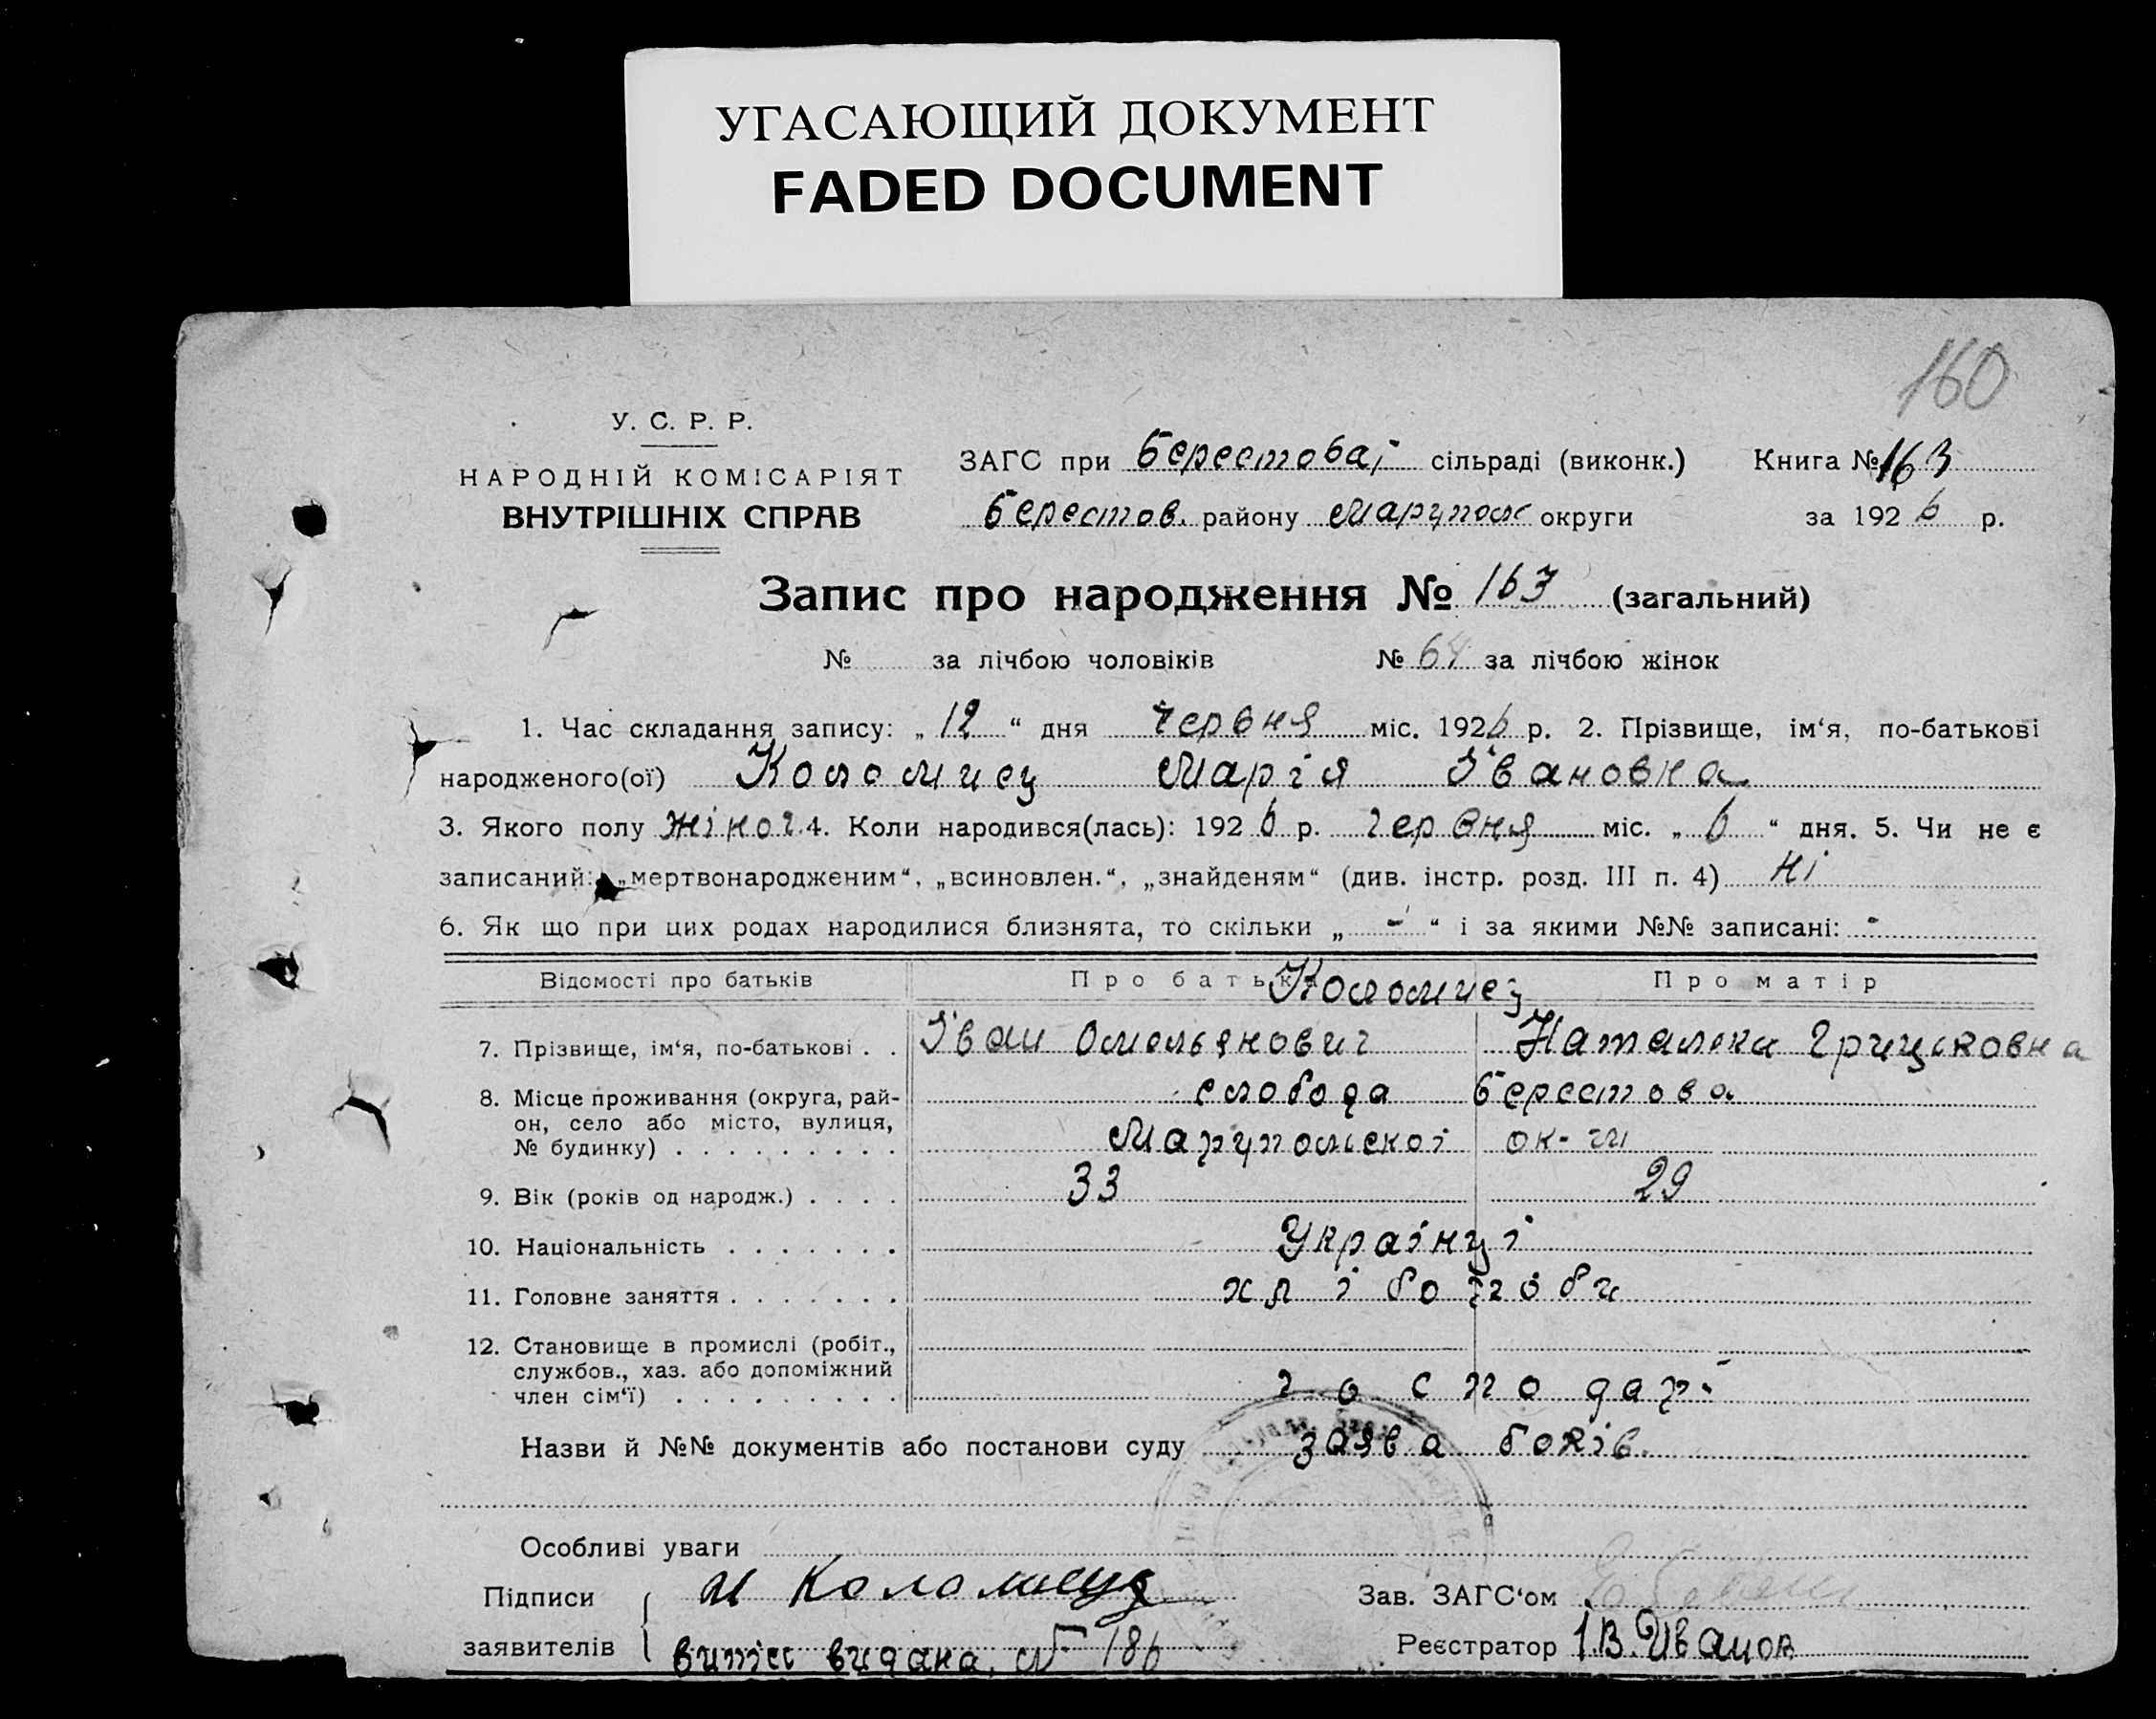 УГАСАЮЩИЙ ДОКУМЕНТ
FADED DOCUMENT
160
У. С. Р. Р.
НАРОДНІЙ КОМІСАРІЯТ
ВНУТРІШНІХ СПРАВ
ЗАГС при Берестоваі сільраді (виконк.) Книга № 163
Берестов. району Марупол округи за 1926 р.
Запис про народження № 163 (загальний)
№ за лічбою чоловіків № 64 за лічбою жінок
1. Час складання запису: „12“ дня червня міс. 1926 р. 2. Прізвище, ім‘я, по-батькові
народженого(ої) Коломиец Марія Івановна
3. Якого полу жіноч. 4. Коли народився(лась): 1926 р. червня міс. „6“ дня. 5. Чи не є
записаний: „мертвонародженим“, „всиновлен.“, „знайденям“ (див. інстр. розд. III п. 4) Ні
6. Як що при цих родах народилися близнята, то скільки „-“ і за якими №№ записані: -
Відомості про батьків Про батьк Про матір
Коломиец
7. Прізвище, ім‘я, по-батькові . . Іван Омельянович Наталка Грицьковна
8. Місце проживання (округа, рай-
он, село або місто, вулиця,
№ будинку) . . . . . . . . .
слобода Берестова
Марупольскої ок-ги
9. Вік (років од народж.) . . . . 33 29
10. Національність . . . . . . . Українці
11. Головне заняття . . . . . . . хліботоби
12. Становище в промислі (робіт.,
службов., хаз. або допоміжний
член сім‘ї) . . . . . . . . . господарі
Назви й №№ документів або постанови суду заява боків.
Особливі уваги
Підписи И Коломиец Зав. ЗАГС‘ом
заявителів витяг видана № 186 Реєстратор І.В. Иванов